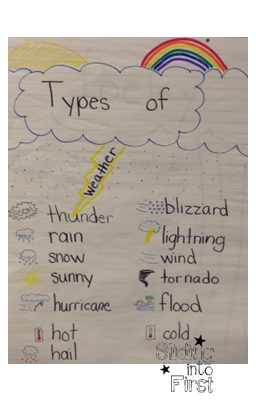 Types of
weather
thunder
rain
snow
sunny
hurricane
hot
hail
blizzard
lightning
wind
tornado
flood
cold
Sliding
into
First